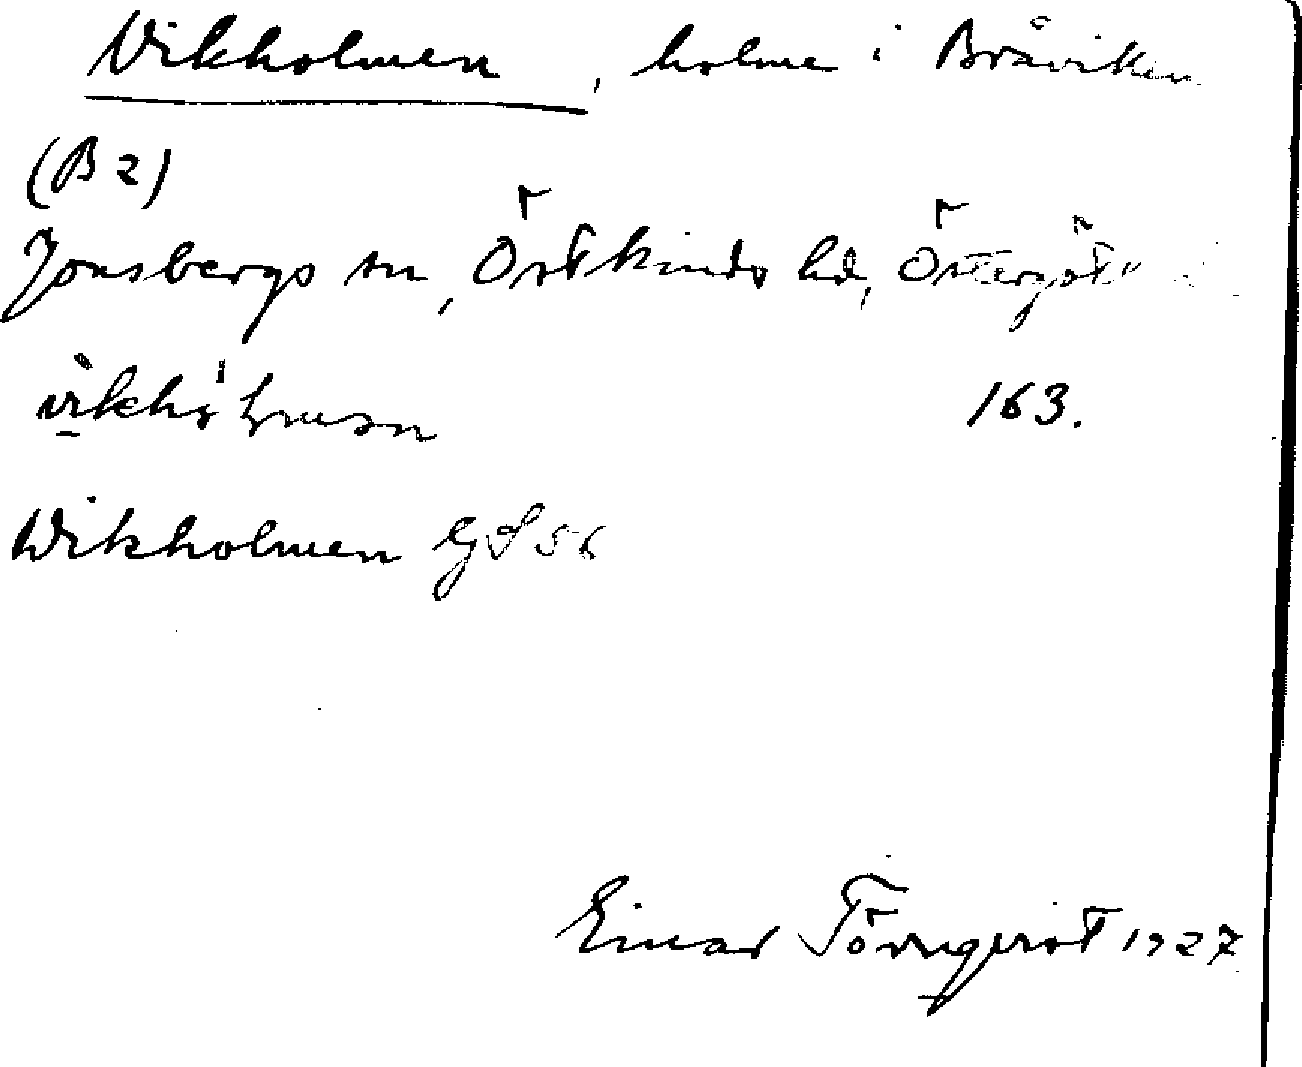 Vikholmen, holme i Bråviken
(B2)
Jonsbergs sn, Östkinds hd, Östergötl
163.
Wikholmen GS 56
Einar Törnqvist 1927